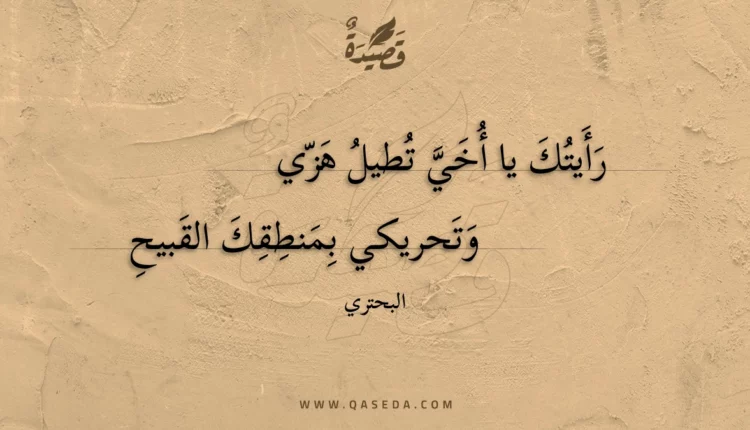 قَصِيدَةٌ
رَأَيتُكَ يا أُخَيَّ تُطيلُ هَزّي
وَتَحريكي بِمَنطِقِكَ القَبيحِ
البحتري
WWW.QASEDA.COM